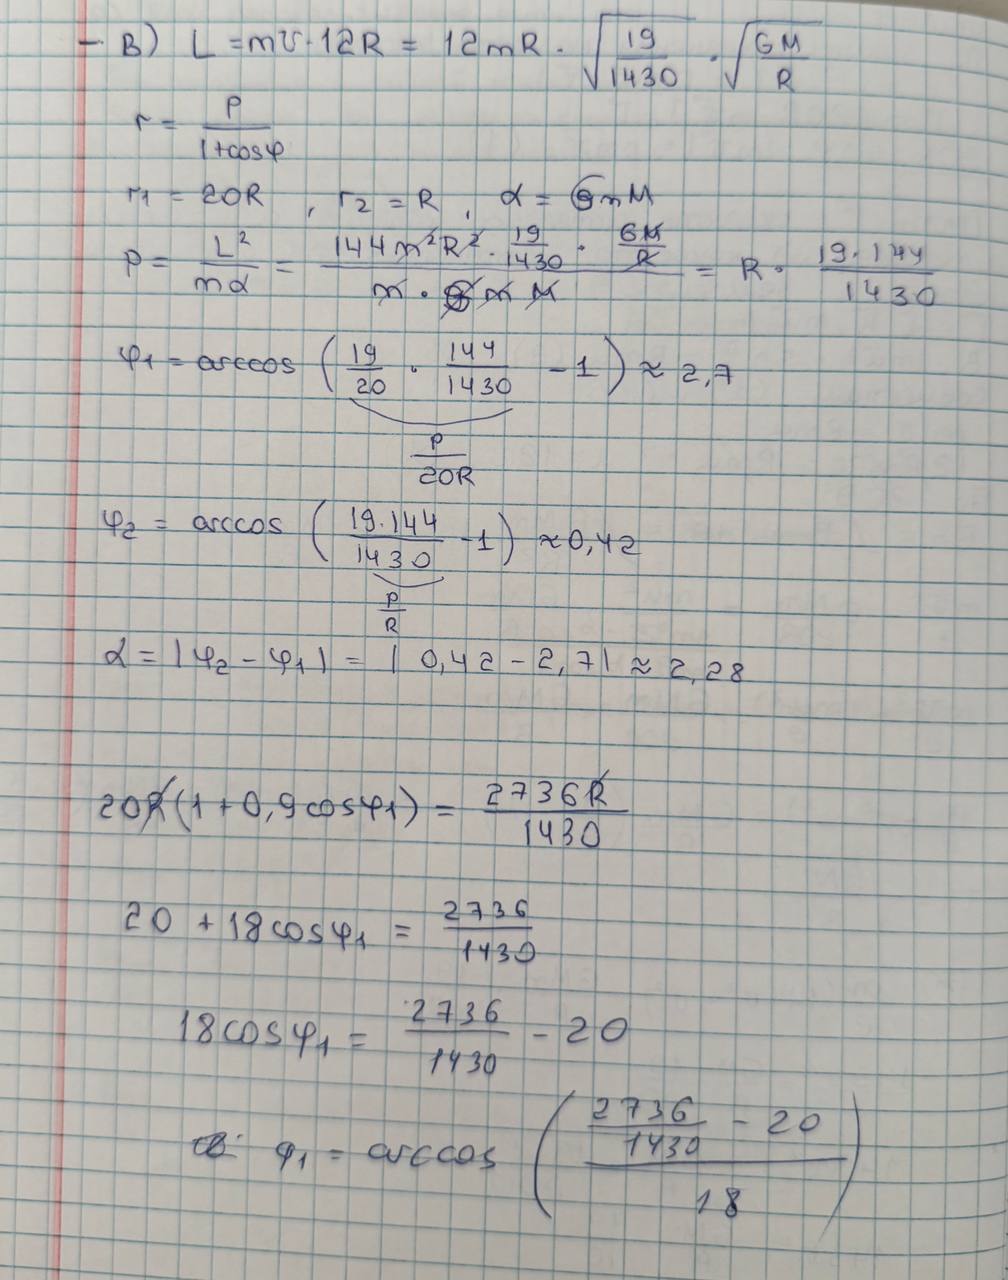 - B) L = mv · 12R = 12mR · √(19/1430) · √(GM/R)
r = P/(1+cosφ)
r₁ = 20R , r₂ = R , α = GmM
p = L²/(mα) = (144m²R² · 19/1430 · GM/R)/(m · G m M) = R · (19·144)/1430
φ₁ = arccos (19/20 · 144/1430 - 1) ≈ 2,7
P/20R
φ₂ = arccos (19·144/1430 - 1) ≈ 0,42
P/R
α = |φ₂ - φ₁| = | 0,42 - 2,7| ≈ 2,28
20R(1 + 0,9cosφ₁) = 2736R/1430
20 + 18cosφ₁ = 2736/1430
18cosφ₁ = 2736/1430 - 20
φ₁ = arccos ((2736/1430 - 20)/18)